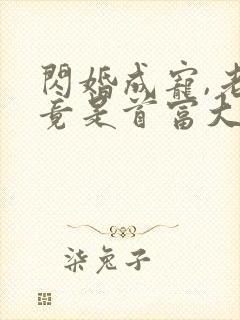 閃婚成寵,老
竟是首富大
柒兔子